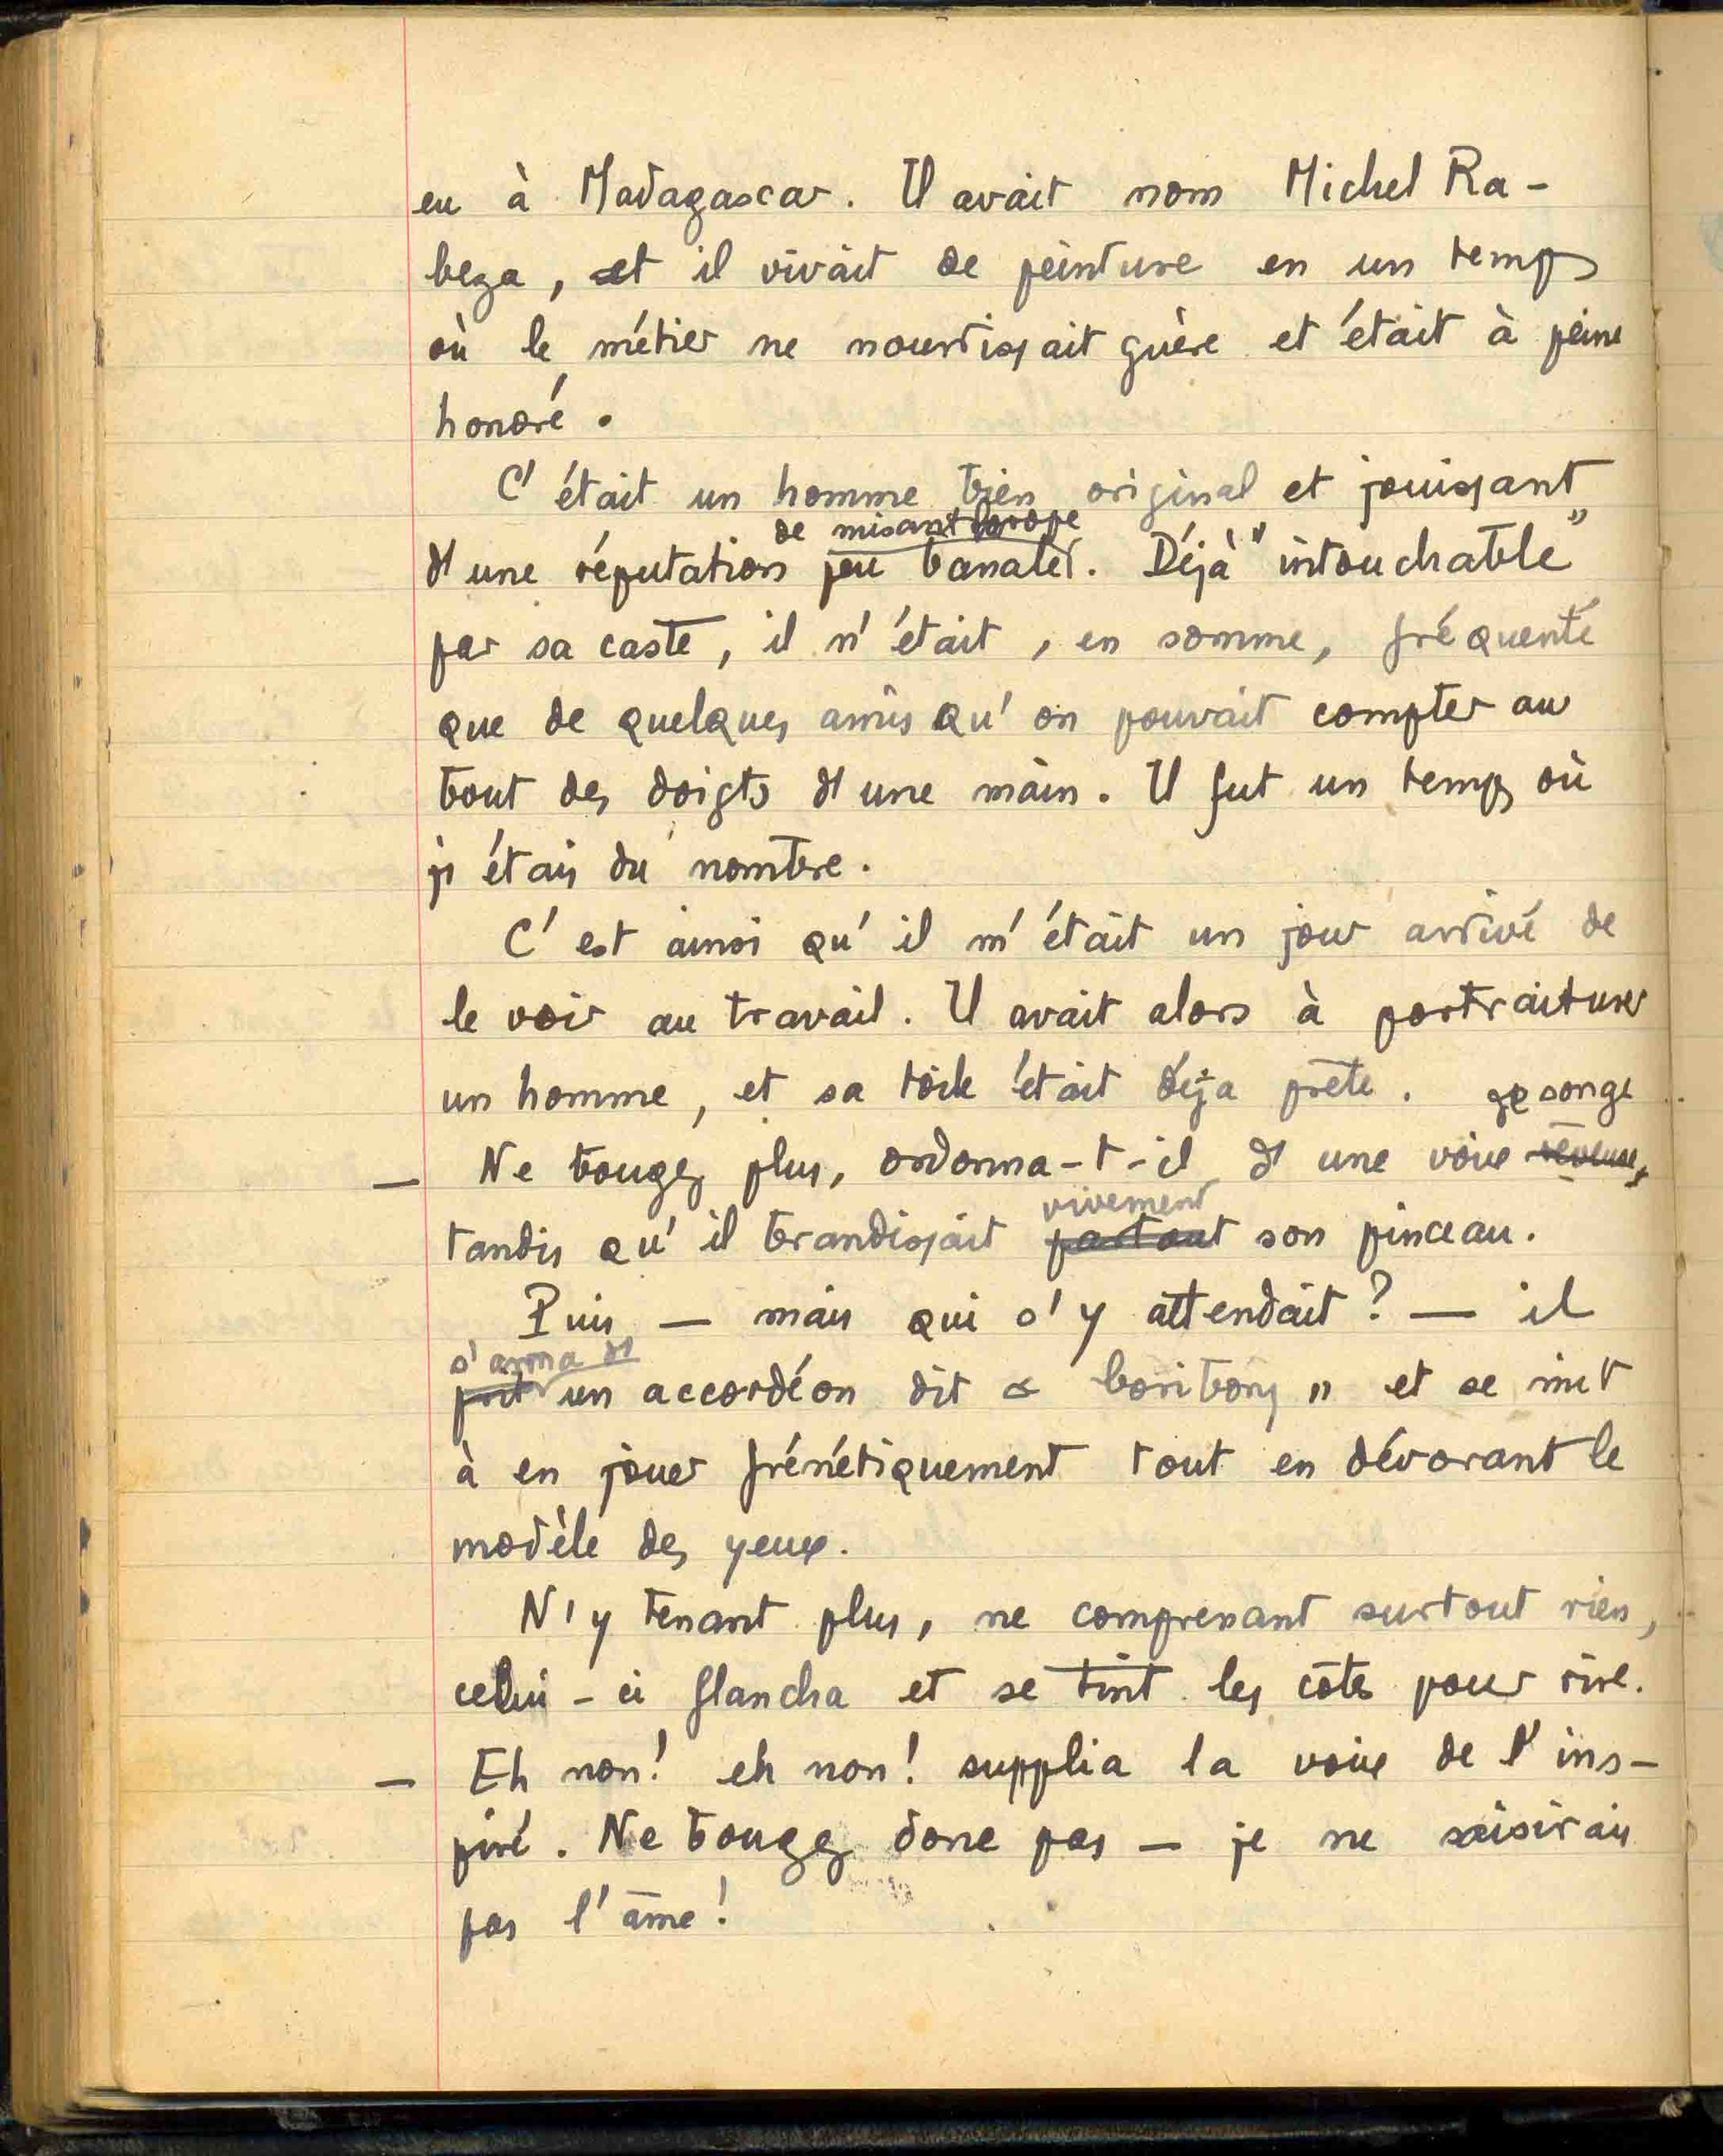 eu à Madagascar. Il avait nom Michel Ra-
beza, et il vivait de peinture en un temps
où le métier ne nourrissait guère et était à peine
honoré.
C'était un homme bien original et jouissant
de misanthrope
d'une réputation peu banale. Déjà "intouchable"
par sa caste, il n'était, en somme, fréquenté
que de quelques amis qu'on pouvait compter au
bout des doigts d'une main. Il fut un temps où
j'étais du nombre.
C'est ainsi qu'il m'était un jour arrivé de
le voir au travail. Il avait alors à portraiturer
un homme, et sa toile était déjà prête.
de songe
— Ne bougez plus, ordonna-t-il d'une voix rêveuse,
vivement
tandis qu'il brandissait partout son pinceau.
Puis — mais qui s'y attendait? — il
s'arma d'
prit un accordéon dit « boribory » et se mit
à en jouer frénétiquement tout en dévorant le
modèle des yeux.
N'y tenant plus, ne comprenant surtout rien,
celui-ci flancha et se tint les côtes pour rire.
— Eh non! eh non! supplia la voix de l'ins-
piré. Ne bougez donc pas — je ne saisirais
pas l'âme!